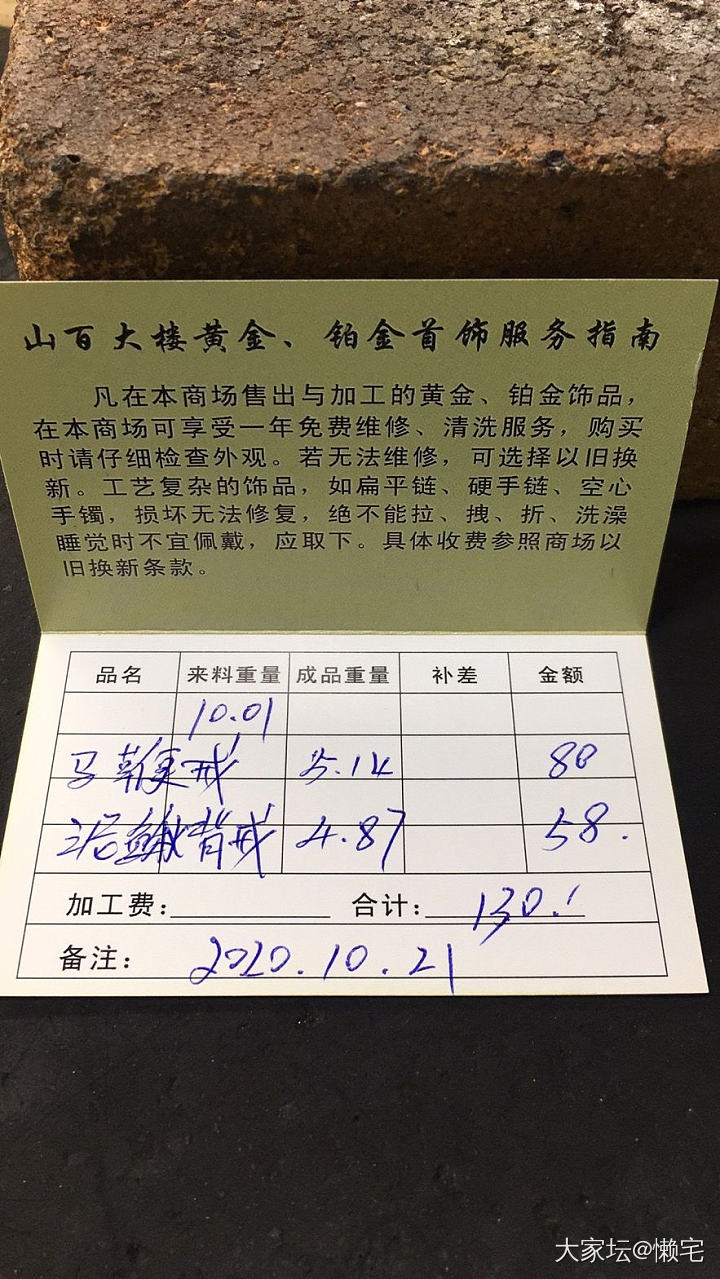 山百大楼黄金、铂金首饰服务指南
凡在本商场售出与加工的黄金、铂金饰品，
在本商场可享受一年免费维修、清洗服务，购买
时请仔细检查外观。若无法维修，可选择以旧换
新。工艺复杂的饰品，如扁平链、硬手链、空心
手镯，损坏无法修复，绝不能拉、拽、折、洗澡
睡觉时不宜佩戴，应取下。具体收费参照商场以
旧换新条款。
品名 来料重量 成品重量 补差 金额
10.01
马鞭戒 5.14 80
泥鳅背戒 4.87 58.
加工费: 合计: 130.
备注: 2020.10.21
大家坛@懒宅